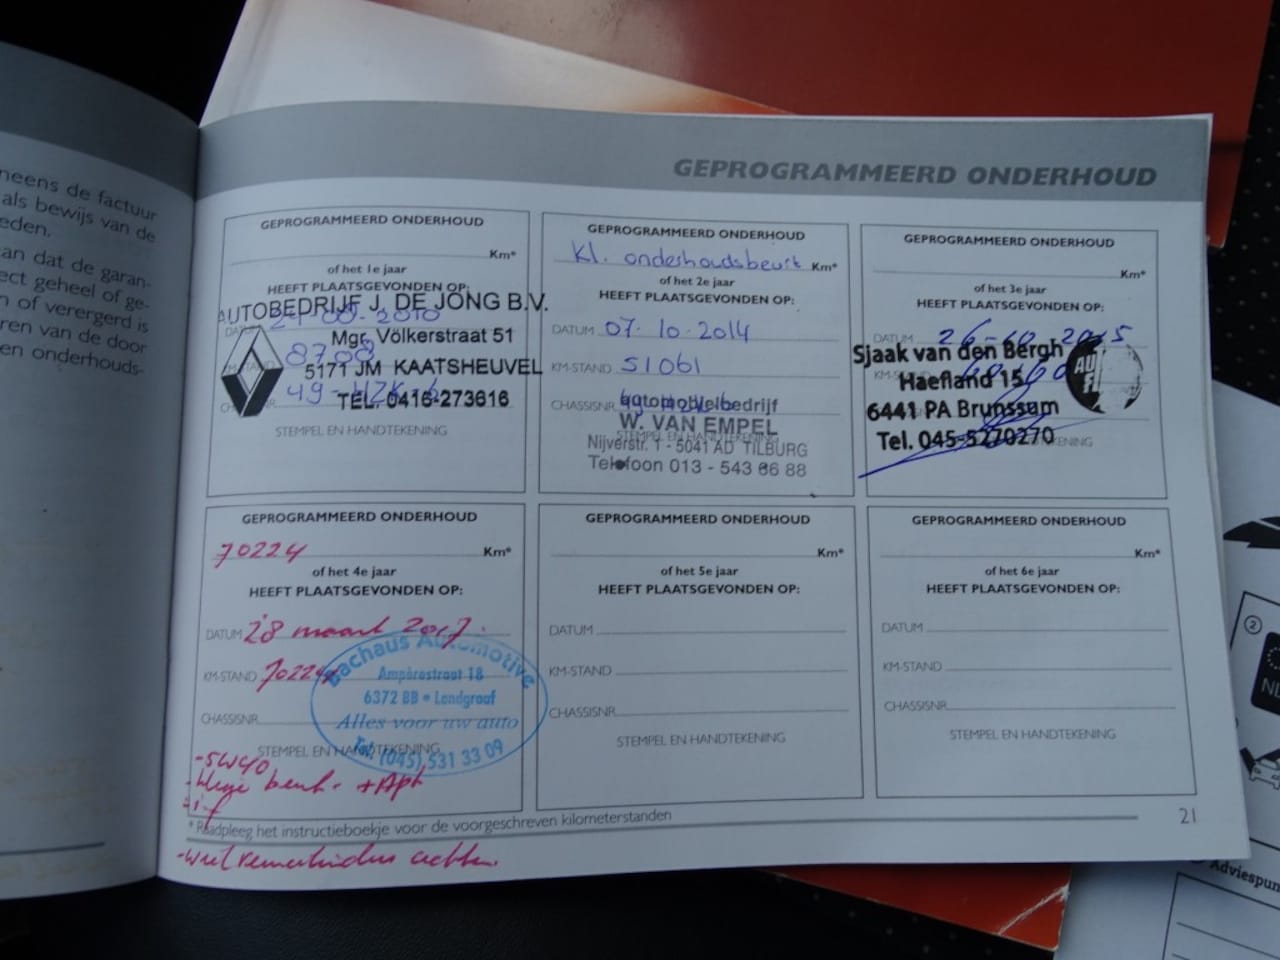 neens de factuur
als bewijs van de
eden.
an dat de garan-
ect geheel of ge-
n of verergerd is
ren van de door
en onderhouds-
GEPROGRAMMEERD ONDERHOUD
GEPROGRAMMEERD ONDERHOUD
Km*
of het 1e jaar
HEEFT PLAATSGEVONDEN OP:
AUTOBEDRIJF J. DE JONG B.V.
DATUM
Mgr. Völkerstraat 51
8708
5171 JM KAATSHEUVEL
49-HZK-6
TEL. 0416-273616
STEMPEL EN HANDTEKENING
GEPROGRAMMEERD ONDERHOUD
Kl. onderhoudsbeurt Km*
of het 2e jaar
HEEFT PLAATSGEVONDEN OP:
DATUM 07-10-2014
KM-STAND 51061
CHASSISNR.
automobielbedrijf
W. VAN EMPEL
STEMPEL EN HANDTEKENING
Nijverstr. 1 - 5041 AD TILBURG
Telefoon 013 - 543 86 88
GEPROGRAMMEERD ONDERHOUD
Km*
of het 3e jaar
HEEFT PLAATSGEVONDEN OP:
DATUM 26-10-2015
Sjaak van den Bergh
Haefland 15
6441 PA Brunssum
Tel. 045-5270270
GEPROGRAMMEERD ONDERHOUD
70224 Km*
of het 4e jaar
HEEFT PLAATSGEVONDEN OP:
DATUM 28 maart 2017.
Bachaus Automotive
KM-STAND 70224
Ampèrestraat 18
6372 BB • Landgraaf
CHASSISNR.
Alles voor uw auto
STEMPEL EN HANDTEKENING
Tel. (045) 531 33 09
-5W40
-kleine beurt. + Apk
GEPROGRAMMEERD ONDERHOUD
Km*
of het 5e jaar
HEEFT PLAATSGEVONDEN OP:
DATUM
KM-STAND
CHASSISNR.
STEMPEL EN HANDTEKENING
GEPROGRAMMEERD ONDERHOUD
Km*
of het 6e jaar
HEEFT PLAATSGEVONDEN OP:
DATUM
KM-STAND
CHASSISNR.
STEMPEL EN HANDTEKENING
* Raadpleeg het instructieboekje voor de voorgeschreven kilometerstanden
21
-wielremcilinders
2
NL
Adviespun